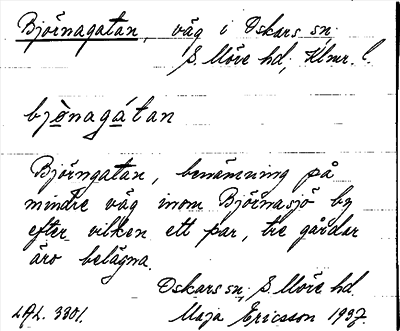 Björnagatan, väg i Oskars sn,
S. Möre hd, Klmr. l.
bjònagátan
Björngatan, benämning på
mindre väg inom Björnasjö by
efter vilken ett par, tre gårdar
äro belägna.
Oskars sn, S. Möre hd
LAL. 3301. Maja Ericsson 1937